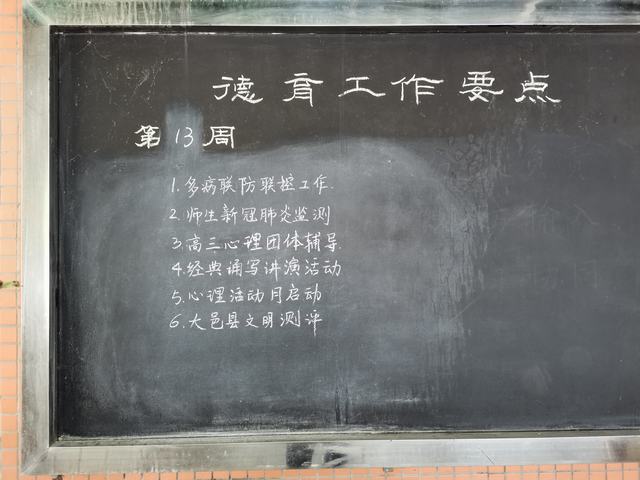 德育工作要点
第13周
1.多病联防联控工作.
2.师生新冠肺炎监测
3.高三心理团体辅导.
4.经典诵写讲演活动
5.心理活动月启动
6.大邑县文明测评